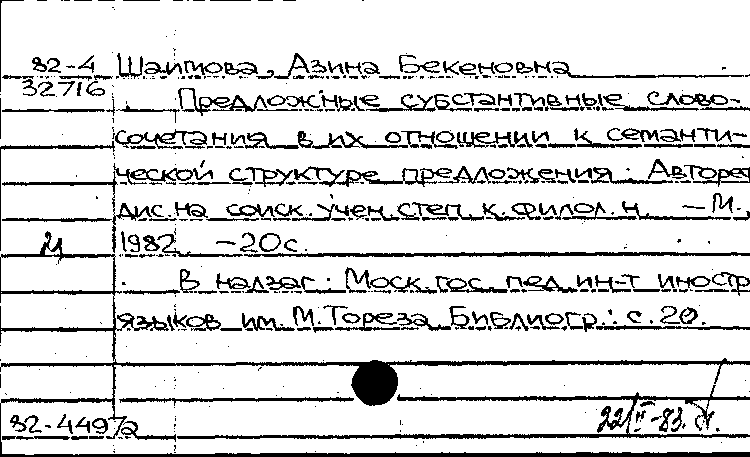 82-4 Шаитова, Азина Бекеновна
32716 Предложные субстантивные слово-
сочетания в их отношении к семанти-
ческой структуре предложения: Авторе
дис. на соиск. учен. степ. к. филол. н. — М.,
1982. — 20 с.
В надзаг.: Моск. гос. пед. ин-т иностр
языков им. М. Тореза. Библиогр.: с. 20.
82-44972 22/II-83.